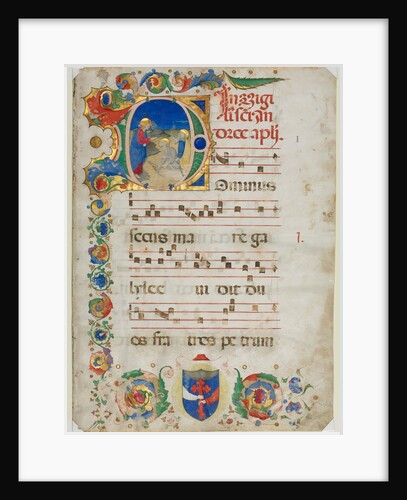 In uigi
li scti an
dree apli.
Dominus
secus ma re ga
lilee ui dit du
os fra tres pe trum